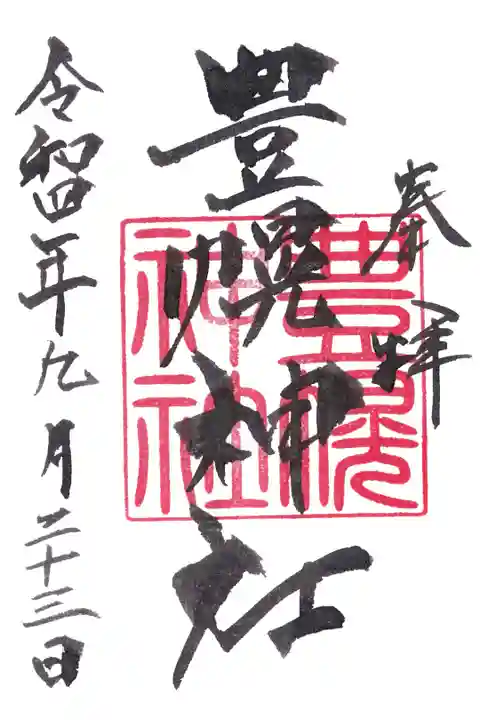 奉拝
豊幌神社
令和四年九月二十三日
豊幌
神社